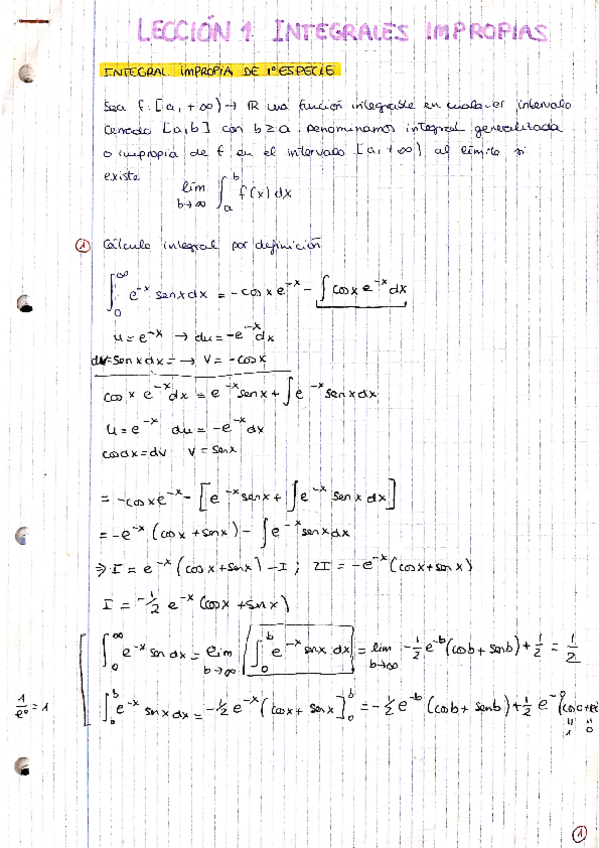 LECCIÓN 1 INTEGRALES IMPROPIAS
INTEGRAL IMPROPIA DE 1ª ESPECIE
Sea f: [a, +∞) → ℝ una función integrable en cualquier intervalo
cerrado [a,b] con b ≥ a. Denominamos integral generalizada
o impropia de f en el intervalo [a, +∞) al límite si
existe.
lim b→∞ ∫_a^b f(x) dx
① Cálculo integral por definición
∫_0^∞ e^-x senx dx = - cos x e^-x - ∫ cos x e^-x dx
u = e^-x → du = -e^-x dx
dv = sen x dx = → v = - cos x
cos x e^-x dx = e^-x sen x + ∫ e^-x sen x dx
u = e^-x du = -e^-x dx
cos dx = dv v = sen x
= - cos x e^-x - [e^-x sen x + ∫ e^-x sen x dx]
= -e^-x (cos x + sen x) - ∫ e^-x sen x dx
⇒ I = e^-x (cos x + sen x) - I ; 2I = -e^-x (cos x + sen x)
I = -1/2 e^-x (cos x + sen x)
∫_0^∞ e^-x sen dx = lim b→∞ ∫_0^b e^-x senx dx = lim b→∞ -1/2 e^-b (cosb + senb) + 1/2 = 1/2
1/e^0 = 1
∫_0^b e^-x sn x dx = -1/2 e^-x (cos x + sen x]_0^b = -1/2 e^-b (cosb + senb) + 1/2 e^-0 (cos0+
1 0
1